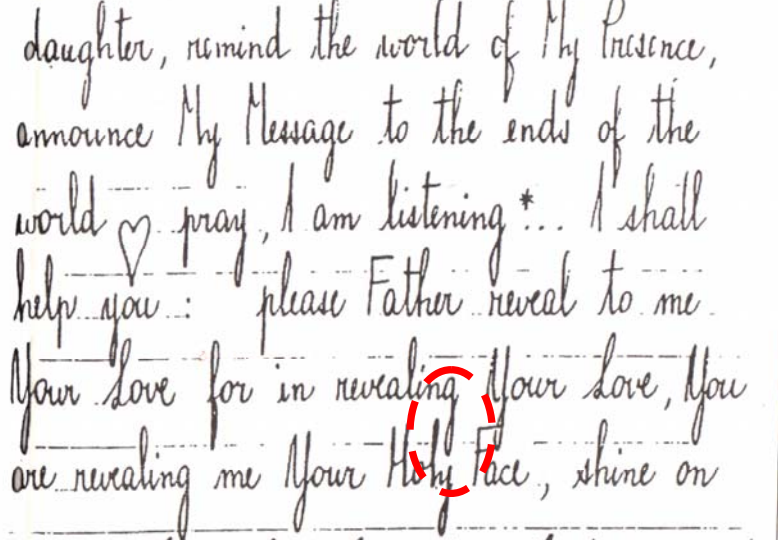 daughter, remind the world of My Presence,
announce My Message to the ends of the
world ♡ pray, I am listening*... I shall
help you : please Father reveal to me
Your Love for in revealing Your Love, You
are revealing me Your Holy Face, shine on